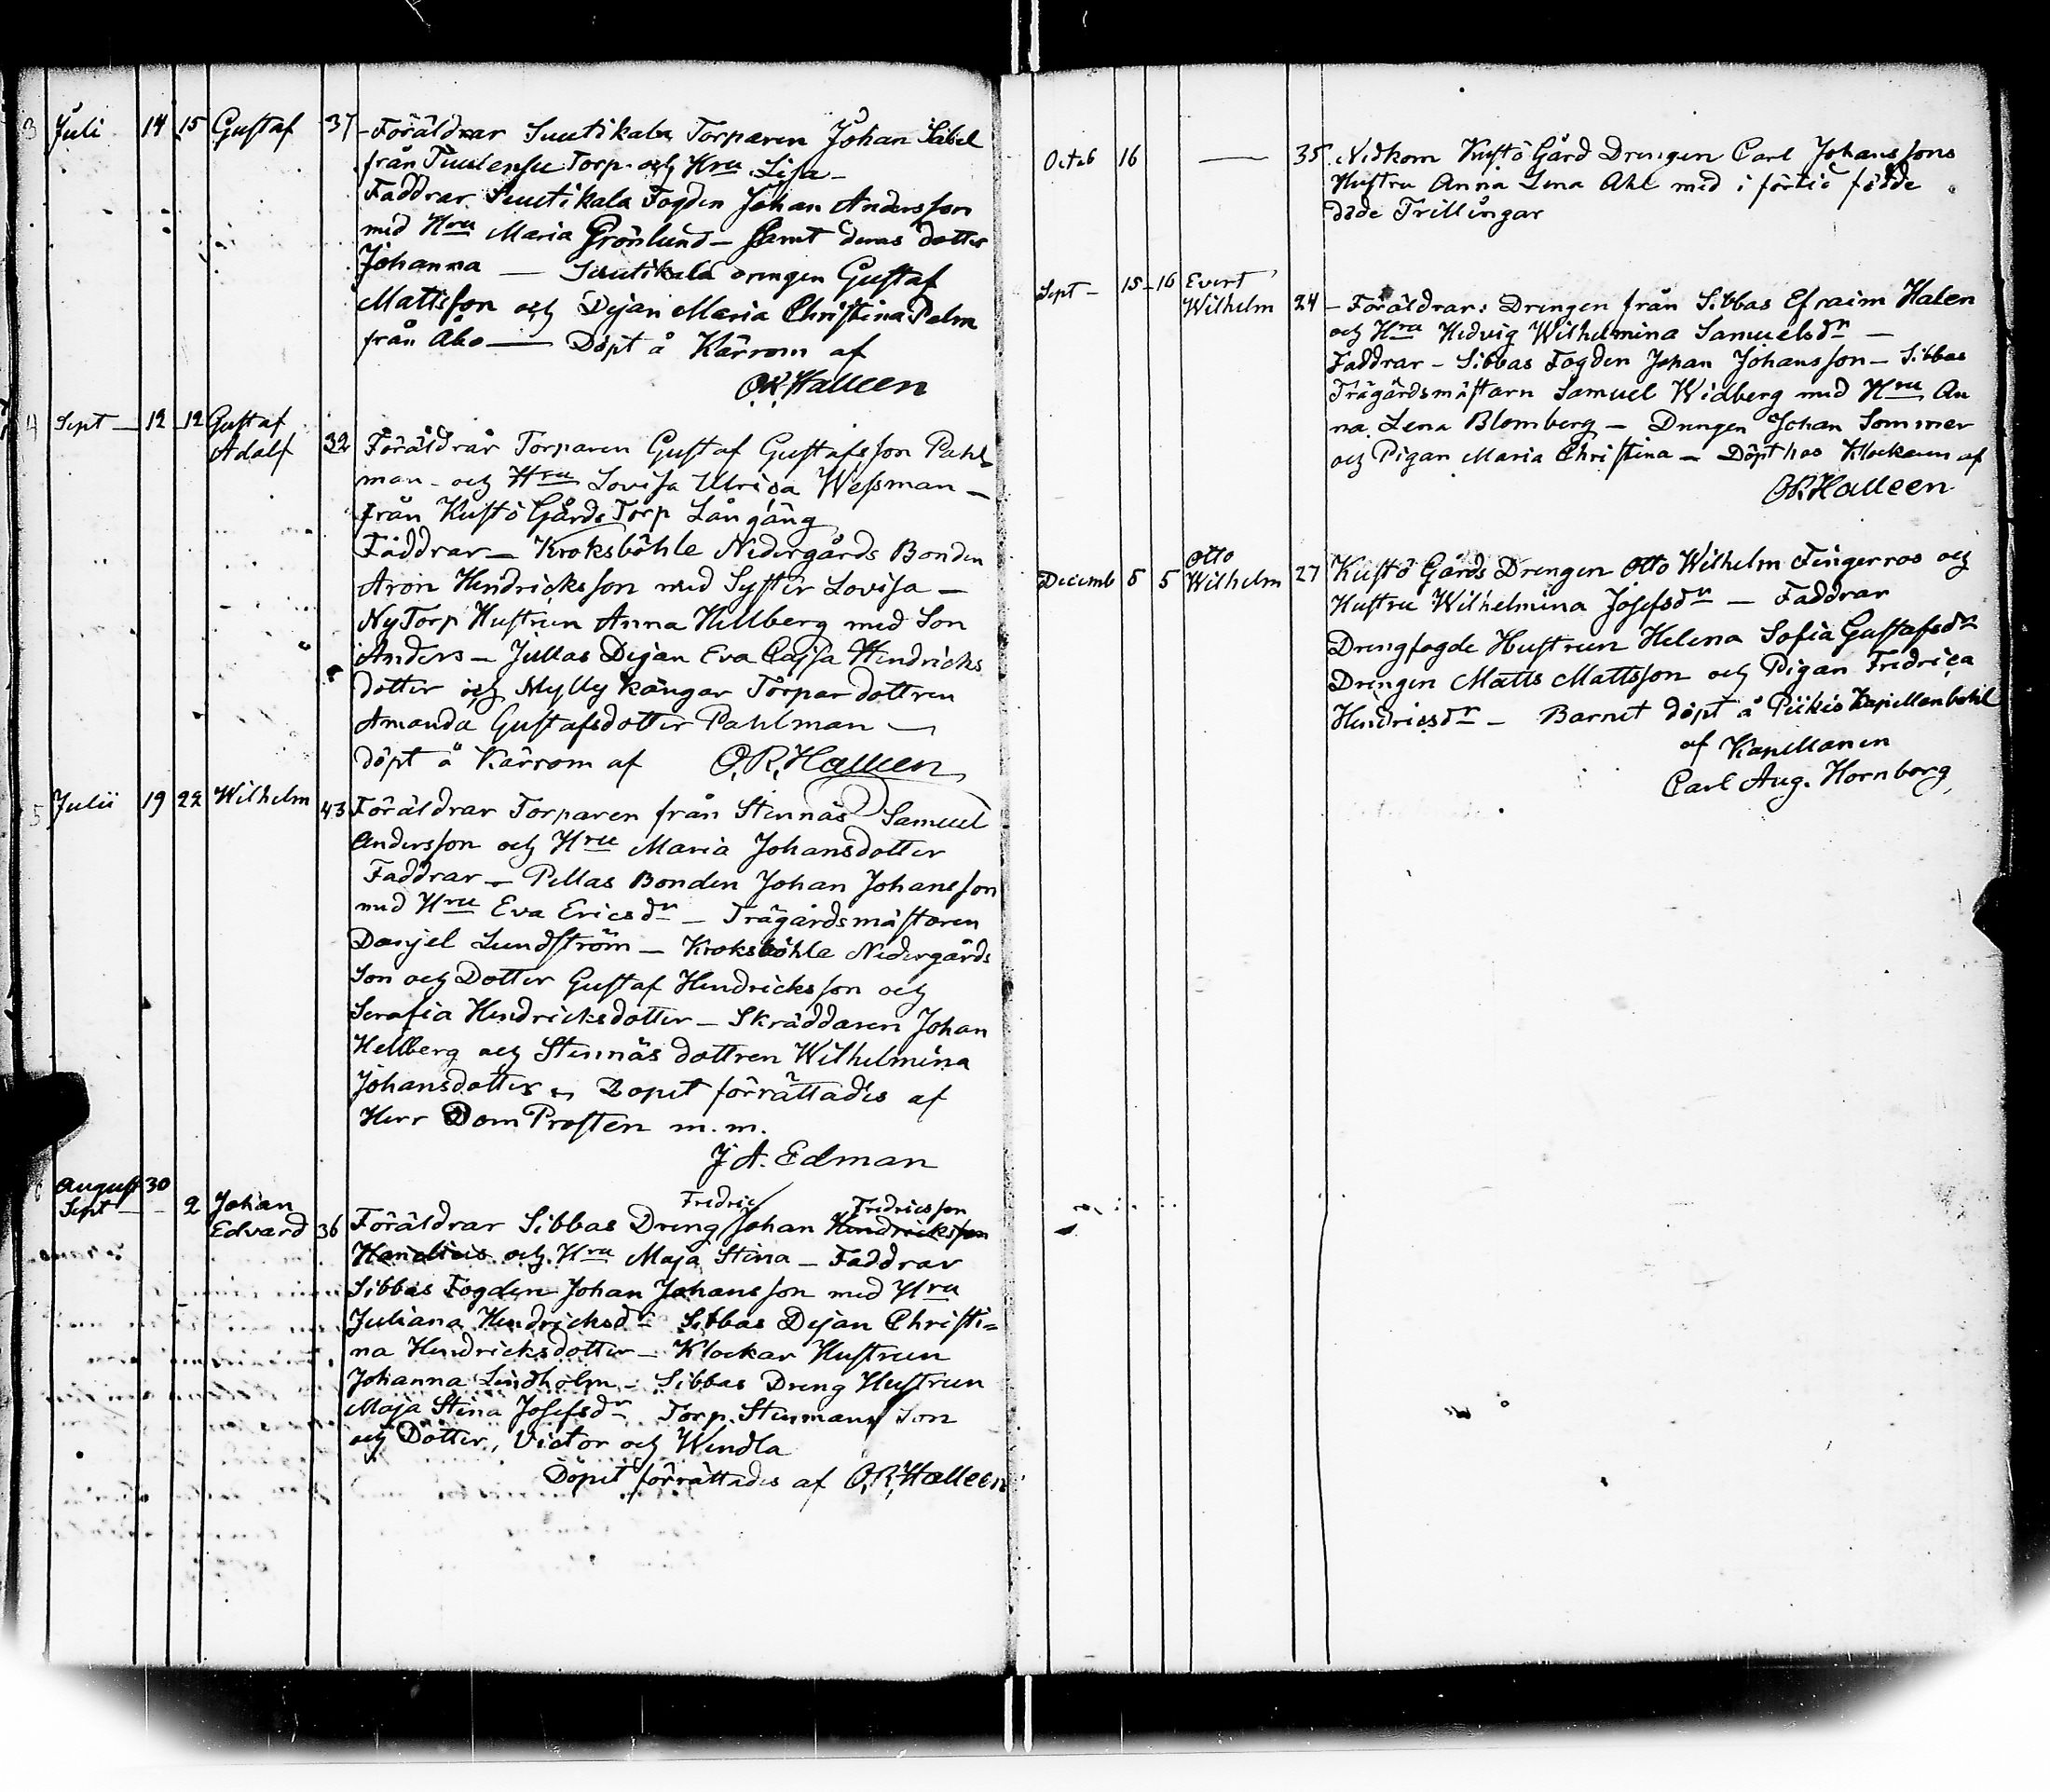 3 Juli 14 15 Gustaf 37 - Föräldrar Suutikala Torparen Johan Sabel
från Torp och Hru Lisa -
Faddrar Suutikala Fogden Johan Andersson
med Hru Maria Grönlund - samt deras dotter
Johanna - Suutikala drengen Gustaf
Mattsson och Dejan Maria Christina Palm
från Åbo - Döpt å Kärrom af
O.R. Halleen
4 Sept - 12 12 Gustaf
Adolf 32 Föräldrar Torparen Gustaf Gustafsson Pahl
man - och Hru Lovisa Ulrica Wessman -
från Kustö Gårds Torp Långäng
Faddrar - Kroksböhle Nedergårds Bonden
Aron Hendricksson med Syster Lovisa -
NyTorp Hustrun Anna Hellberg med Son
Anders - Jullas Dejan Eva Cajsa Hendricks
dotter och Mylly kångar Torpar dottren
Amanda Gustafsdotter Pahlman -
döpt å Kärrom af O.R. Halleen
5 Julii 19 22 Wilhelm 43 Föräldrar Torparen från Stennäs Samuel
Andersson och Hru Maria Johansdotter
Faddrar - Pellas Bonden Johan Johansson
med Hru Eva Ericsdr - Trägårdsmästaren
Danjel Lundström - Kroksböhle Nedergårds
Son och Dotter Gustaf Hendricksson och
Serafia Hendricksdotter - Skräddaren Johan
Hellberg och Stennäs dottren Wilhelmina
Johansdotter - Dopet förrättades af
Herr Dom Prosten m.m.
J A. Edman
6 August 30
Sept - - 2 Johan
Edvard 36 Föräldrar Sibbas Dreng Fredric Johan Hendricksson Fredricsson
och Hru Maja Stina - Faddrar
Sibbas Fogden Johan Johansson med Hru
Juliana Hendricksdr - Sibbas Dejan Christi=
na Hendricksdotter - Klockar Hustrun
Johanna Lindholm - Sibbas Dreng Hustrun
Maja Stina Josefsdr Torp. Stenmans Son
och Dotter, Victor och Wendla
Döpet förrättades af O.R. Halleen
Octob 16 - 35 Nedkom Kustö Gård Drengen Carl Johanssons
Hustru Anna Lena Ahl med i förtid födde
döde Trillingar
Sept - 15 - 16 Evert
Wilhelm 24 - Föräldrar: Drengen från Sibbas Efraim Halen
och Hru Hedvig Wilhelmina Samuelsdr -
Faddrar - Sibbas Fogden Johan Johansson - Sibbas
Trägårdsmästarn Samuel Widberg med Hru An
na Lena Blomberg - Drengen Johan Sommer
och Pigan Maria Christina - Döpt hos Klockaren af
O.R. Halleen
Decemb 5 5 Otto
Wilhelm 27 Kustö Gårds Drengen Otto Wilhelm Fingerroos och
Hustru Wilhelmina Josefsdr - Faddrar
Drengfogde Hustrun Helena Sofia Gustafsdr
Drengen Matts Mattsson och Pigan Fredrica
Hendricsdr - Barnet döpt å Piikis Kapellanbohl
af Kapellanen
Carl Aug. Hornborg